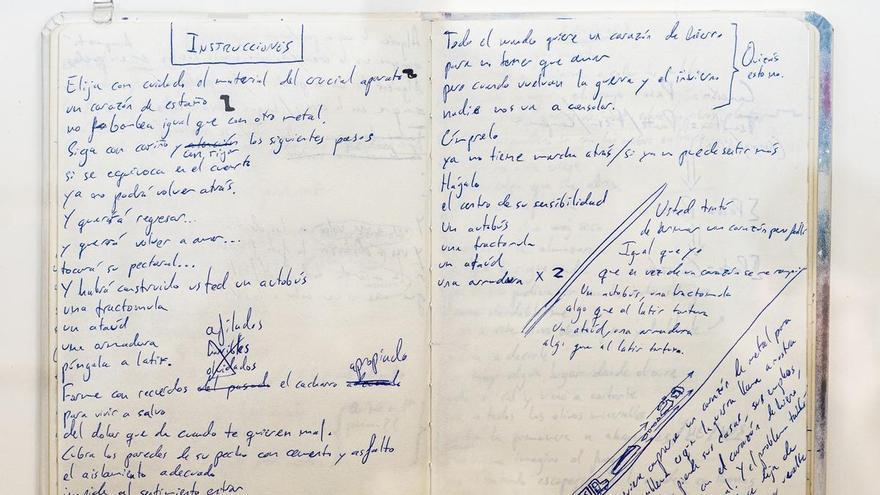 INSTRUCCIONES
Elija con cuidado el material del crucial aparato
un corazón de estaño
no bombea igual que con otro metal.
Siga con cariño y atención los siguientes pasos
con rigor
si se equivoca en el cuarto
ya no podrá volver atrás.
Y querrá regresar...
y querrá volver a amar...
tocará su pectoral...
Y habrá construido usted un autobús
una tractomula
un ataúd
una armadura
póngala a latir.
afilados
olvidados
Forme con recuerdos del pasado el cacharro
apropiado
para vivir a salvo
del dolor que da cuando te quieren mal.
Cubra las paredes de su pecho con cemento y asfalto
el aislamiento adecuado
impide al sentimiento entrar
Todo el mundo quiere un corazón de hierro
para no tener que amar
pero cuando vuelvan la guerra y el invierno
nadie nos va a consolar.
Quizás
esto no.
Cúmprelo
ya no tiene marcha atrás / si ya no puede sentir más
Hágalo
el centro de su sensibilidad
Un autobús
una tractomula
un ataúd
una armadura x 2
Usted trató
de armar un corazón pero falló
Igual que yo
que en vez de un corazón se me rompió
Un autobús, una tractomula
algo que al latir tortura
Un ataúd, una armadura
algo que al latir tortura.
un corazón de metal para
la guerra llame a nuestra
sus casas, sus empleos,
el corazón de hierro
Y el problema
deja de